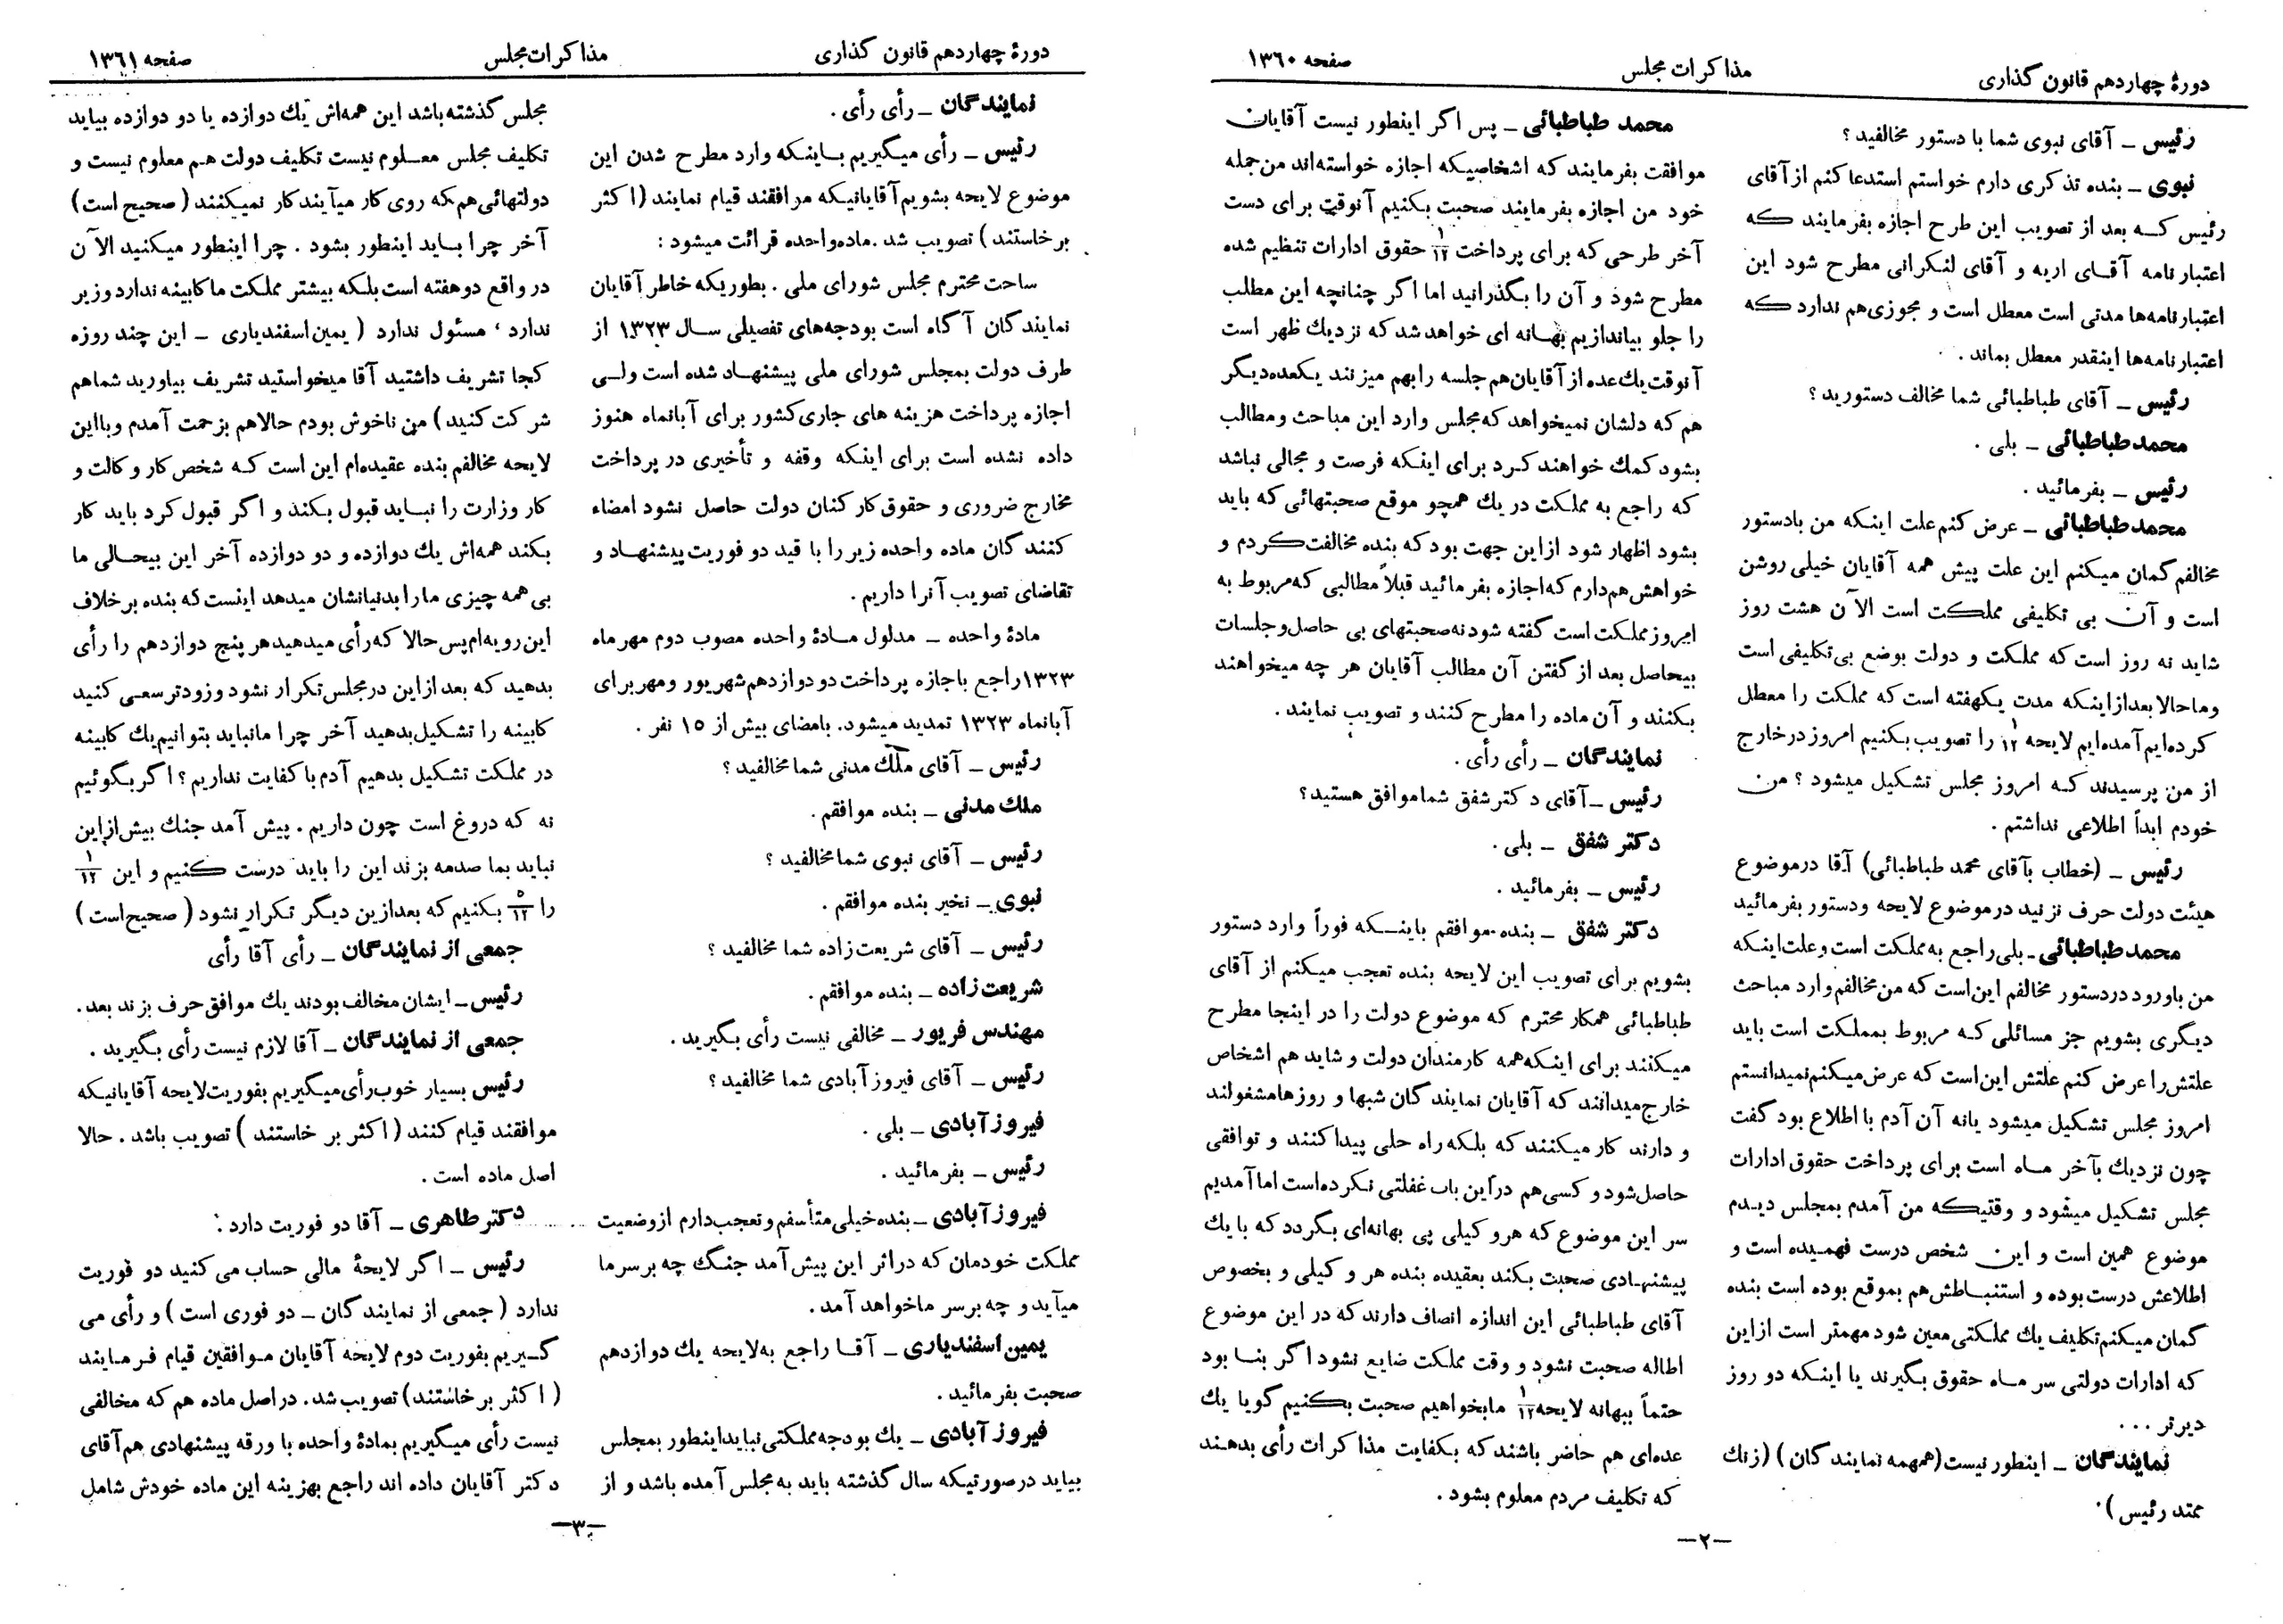 دورهٔ چهاردهم قانون گذاری
مذاکرات مجلس
صفحه ۱۳۶۰
رئیس ـ آقای نبوی شما با دستور مخالفید ؟
نبوی ـ بنده تذکری دارم خواستم استدعا کنم از آقای
رئیس که بعد از تصویب این طرح اجازه بفرمایند که
اعتبارنامه آقای اریه و آقای لنکرانی مطرح شود این
اعتبارنامه‌ها مدتی است معطل است و مجوزی هم ندارد که
اعتبارنامه‌ها اینقدر معطل بماند .
رئیس ـ آقای طباطبائی شما مخالف دستورید ؟
محمد طباطبائی ـ بلی .
رئیس ـ بفرمائید .
محمد طباطبائی ـ عرض کنم علت اینکه من بادستور
مخالفم گمان میکنم این علت پیش همه آقایان خیلی روشن
است و آن بی تکلیفی مملکت است الآن هشت روز
شاید نه روز است که مملکت و دولت بوضع بی‌تکلیفی است
وما حالا بعد از اینکه مدت یکهفته است که مملکت را معطل
کرده‌ایم آمده‌ایم لایحه ۱/۱۲ را تصویب بکنیم امروز در خارج
از من پرسیدند که امروز مجلس تشکیل میشود ؟ من
خودم ابداً اطلاعی نداشتم .
رئیس ـ (خطاب بآقای محمد طباطبائی) آقا در موضوع
هیئت دولت حرف نزنید در موضوع لایحه ودستور بفرمائید
محمد طباطبائی ـ بلی راجع به مملکت است وعلت اینکه
من باورود در دستور مخالفم این است که من مخالفم وارد مباحث
دیگری بشویم جز مسائلی که مربوط بمملکت است باید
علتش را عرض کنم علتش این است که عرض میکنم نمیدانستم
امروز مجلس تشکیل میشود یانه آن آدم با اطلاع بود گفت
چون نزدیك بآخر ماه است برای پرداخت حقوق ادارات
مجلس تشکیل میشود و وقتیکه من آمدم بمجلس دیدم
موضوع همین است و این شخص درست فهمیده است و
اطلاعش درست بوده و استنباطش هم بموقع بوده است بنده
گمان میکنم تکلیف یك مملکتی معین شود مهمتر است از این
که ادارات دولتی سر ماه حقوق بگیرند یا اینکه دو روز
دیرتر ...
نمایندگان ـ اینطور نیست (همهمه نمایندگان) (زنك
ممتد رئیس) .
محمد طباطبائی ـ پس اگر اینطور نیست آقایان
موافقت بفرمایند که اشخاصیکه اجازه خواسته‌اند من جمله
خود من اجازه بفرمایند صحبت بکنیم آنوقت برای دست
آخر طرحی که برای پرداخت ۱/۱۲ حقوق ادارات تنظیم شده
مطرح شود و آن را بگذرانید اما اگر چنانچه این مطلب
را جلو بیاندازیم بهانه ای خواهد شد که نزدیك ظهر است
آنوقت یك عده از آقایان هم جلسه را بهم میزنند یکعده دیگر
هم که دلشان نمیخواهد که مجلس وارد این مباحث ومطالب
بشود کمك خواهند کرد برای اینکه فرصت و مجالی نباشد
که راجع به مملکت در یك همچو موقع صحبتهائی که باید
بشود اظهار شود از این جهت بود که بنده مخالفت کردم و
خواهش هم دارم که اجازه بفرمائید قبلاً مطالبی که مربوط به
امروز مملکت است گفته شود نه صحبتهای بی حاصل وجلسات
بیحاصل بعد از گفتن آن مطالب آقایان هر چه میخواهند
بکنند و آن ماده را مطرح کنند و تصویب نمایند .
نمایندگان ـ رأی رأی .
رئیس ـ آقای دکتر شفق شما موافق هستید ؟
دکتر شفق ـ بلی .
رئیس ـ بفرمائید .
دکتر شفق ـ بنده موافقم باینکه فوراً وارد دستور
بشویم برای تصویب این لایحه بنده تعجب میکنم از آقای
طباطبائی همکار محترم که موضوع دولت را در اینجا مطرح
میکنند برای اینکه همه کارمندان دولت و شاید هم اشخاص
خارج میدانند که آقایان نمایندگان شبها و روزها مشغولند
و دارند کار میکنند که بلکه راه حلی پیدا کنند و توافقی
حاصل شود و کسی هم در این باب غفلتی نکرده است اما آمدیم
سر این موضوع که هر وکیلی پی بهانه‌ای بگردد که با یك
پیشنهادی صحبت بکند بعقیده بنده هر وکیلی و بخصوص
آقای طباطبائی این اندازه انصاف دارند که در این موضوع
اطاله صحبت نشود و وقت مملکت ضایع نشود اگر بنا بود
حتماً ببهانه لایحه ۱/۱۲ ما بخواهیم صحبت بکنیم گویا یك
عده‌ای هم حاضر باشند که بکفایت مذاکرات رأی بدهند
که تکلیف مردم معلوم بشود .
ـ۲ـ
دورهٔ چهاردهم قانون گذاری
مذاکرات مجلس
صفحه ۱۳۶۱
نمایندگان ـ رأی رأی .
رئیس ـ رأی میگیریم باینکه وارد مطرح شدن این
موضوع لایحه بشویم آقایانیکه موافقند قیام نمایند (اکثر
برخاستند) تصویب شد . ماده واحده قرائت میشود :
ساحت محترم مجلس شورای ملی . بطوریکه خاطر آقایان
نمایندگان آگاه است بودجه‌های تفصیلی سال ۱۳۲۳ از
طرف دولت بمجلس شورای ملی پیشنهاد شده است ولی
اجازه پرداخت هزینه های جاری کشور برای آبانماه هنوز
داده نشده است برای اینکه وقفه و تأخیری در پرداخت
مخارج ضروری و حقوق کارکنان دولت حاصل نشود امضاء
کنندگان ماده واحده زیر را با قید دو فوریت پیشنهاد و
تقاضای تصویب آنرا داریم .
مادهٔ واحده ـ مدلول مادهٔ واحده مصوب دوم مهرماه
۱۳۲۳ راجع باجازه پرداخت دو دوازدهم شهریور ومهر برای
آبانماه ۱۳۲۳ تمدید میشود. بامضای بیش از ۱۵ نفر .
رئیس ـ آقای ملك مدنی شما مخالفید ؟
ملك مدنی ـ بنده موافقم .
رئیس ـ آقای نبوی شما مخالفید ؟
نبوی ـ نخیر بنده موافقم .
رئیس ـ آقای شریعت زاده شما مخالفید ؟
شریعت زاده ـ بنده موافقم .
مهندس فریور ـ مخالفی نیست رأی بگیرید .
رئیس ـ آقای فیروزآبادی شما مخالفید ؟
فیروزآبادی ـ بلی .
رئیس ـ بفرمائید .
فیروزآبادی ـ بنده خیلی متأسفم وتعجب دارم از وضعیت
مملکت خودمان که در اثر این پیش آمد جنگ چه بر سر ما
میآید و چه بر سر ما خواهد آمد .
یمین اسفندیاری ـ آقا راجع به لایحه یك دوازدهم
صحبت بفرمائید .
فیروزآبادی ـ یك بودجه مملکتی نباید اینطور بمجلس
بیاید در صورتیکه سال گذشته باید به مجلس آمده باشد و از
مجلس گذشته باشد این همه‌اش یك دوازده یا دو دوازده بیاید
تکلیف مجلس معلوم نیست تکلیف دولت هم معلوم نیست و
دولتهائی هم که روی کار میآیند کار نمیکنند (صحیح است)
آخر چرا باید اینطور بشود . چرا اینطور میکنید الآن
در واقع دو هفته است بلکه بیشتر مملکت ما کابینه ندارد وزیر
ندارد ، مسئول ندارد ( یمین اسفندیاری ـ این چند روزه
کجا تشریف داشتید آقا میخواستید تشریف بیاورید شما هم
شرکت کنید) من ناخوش بودم حالا هم بزحمت آمدم وبا این
لایحه مخالفم بنده عقیده‌ام این است که شخص کار وکالت و
کار وزارت را نباید قبول بکند و اگر قبول کرد باید کار
بکند همه‌اش یك دوازده و دو دوازده آخر این بیحالی ما
بی همه چیزی ما را بدنیا نشان میدهد اینست که بنده بر خلاف
این رویه‌ام پس حالا که رأی میدهید هر پنج دوازدهم را رأی
بدهید که بعد از این در مجلس تکرار نشود وزودتر سعی کنید
کابینه را تشکیل بدهید آخر چرا ما نباید بتوانیم یك کابینه
در مملکت تشکیل بدهیم آدم با کفایت نداریم ؟ اگر بگوئیم
نه که دروغ است چون داریم . پیش آمد جنك بیش از این
نباید بما صدمه بزند این را باید درست کنیم و این ۱/۱۲
را ۵/۱۲ بکنیم که بعد ازین دیگر تکرار نشود (صحیح است)
جمعی از نمایندگان ـ رأی آقا رأی
رئیس ـ ایشان مخالف بودند یك موافق حرف بزند بعد .
جمعی از نمایندگان ـ آقا لازم نیست رأی بگیرید .
رئیس بسیار خوب رأی میگیریم بفوریت لایحه آقایانیکه
موافقند قیام کنند (اکثر برخاستند) تصویب باشد . حالا
اصل ماده است .
دکتر طاهری ـ آقا دو فوریت دارد .
رئیس ـ اگر لایحهٔ مالی حساب می کنید دو فوریت
ندارد (جمعی از نمایندگان ـ دو فوری است) و رأی می
گیریم بفوریت دوم لایحه آقایان موافقین قیام فرمایند
(اکثر برخاستند) تصویب شد . در اصل ماده هم که مخالفی
نیست رأی میگیریم بمادهٔ واحده با ورقه پیشنهادی هم آقای
دکتر آقایان داده اند راجع بهزینه این ماده خودش شامل
ـ۳ـ